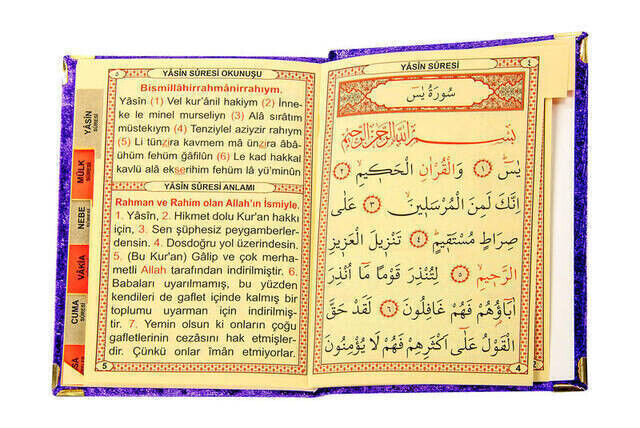 YÂSİN SÛRESİ
٤
سُورَةُ يٰسٓ
بِسْمِ اللّٰهِ الرَّحْمٰنِ الرَّحِيمِ
يٰسٓ ﴿١﴾ وَالْقُرْاٰنِ الْحَكِيمِۙ ﴿٢﴾
اِنَّكَ لَمِنَ الْمُرْسَلِينَۙ ﴿٣﴾ عَلٰى
صِرَاطٍ مُسْتَقِيمٍۜ ﴿٤﴾ تَنْزِيلَ الْعَزِيزِ
الرَّحِيمِۙ ﴿٥﴾ لِتُنْذِرَ قَوْمًا مَٓا اُنْذِرَ
اٰبَٓاؤُ۬هُمْ فَهُمْ غَافِلُونَ ﴿٦﴾ لَقَدْ حَقَّ
الْقَوْلُ عَلٰٓى اَكْثَرِهِمْ فَهُمْ لَا يُؤْمِنُونَ
4
2
YÂSİN SÛRESİ OKUNUŞU
٥
Bismillâhirrahmânirrahıym.
Yâsîn (1) Vel kur'ânil hakiym (2) İnne-
ke le minel murseliyn (3) Alâ sırâtım
müstekıym (4) Tenziylel aziyzir rahıym
(5) Li tünzira kavmem mâ ünzira âbâ-
ühüm fehüm ğâfilûn (6) Le kad hakkal
kavlü alâ ekserihim fehüm lâ yü'minûn
YÂSİN SÛRESİ ANLAMI
Rahman ve Rahim olan Allah'ın İsmiyle.
1. Yâsîn, 2. Hikmet dolu Kur'an hakkı
için, 3. Sen şüphesiz peygamberler-
densin. 4. Dosdoğru yol üzerindesin.
5. (Bu Kur'an) Gâlip ve çok merha-
metli Allah tarafından indirilmiştir. 6.
Babaları uyarılmamış, bu yüzden
kendileri de gaflet içinde kalmış bir
toplumu uyarman için indirilmiş-
tir. 7. Yemin olsun ki onların çoğu
gafletlerinin cezasını hak etmişler-
dir. Çünkü onlar îmân etmiyorlar.
5
YÂSİN
SÛRESİ
MÜLK
SÛRESİ
NEBE
SÛRESİ
VÂKIA
SÛRESİ
CUMA
SÛRESİ